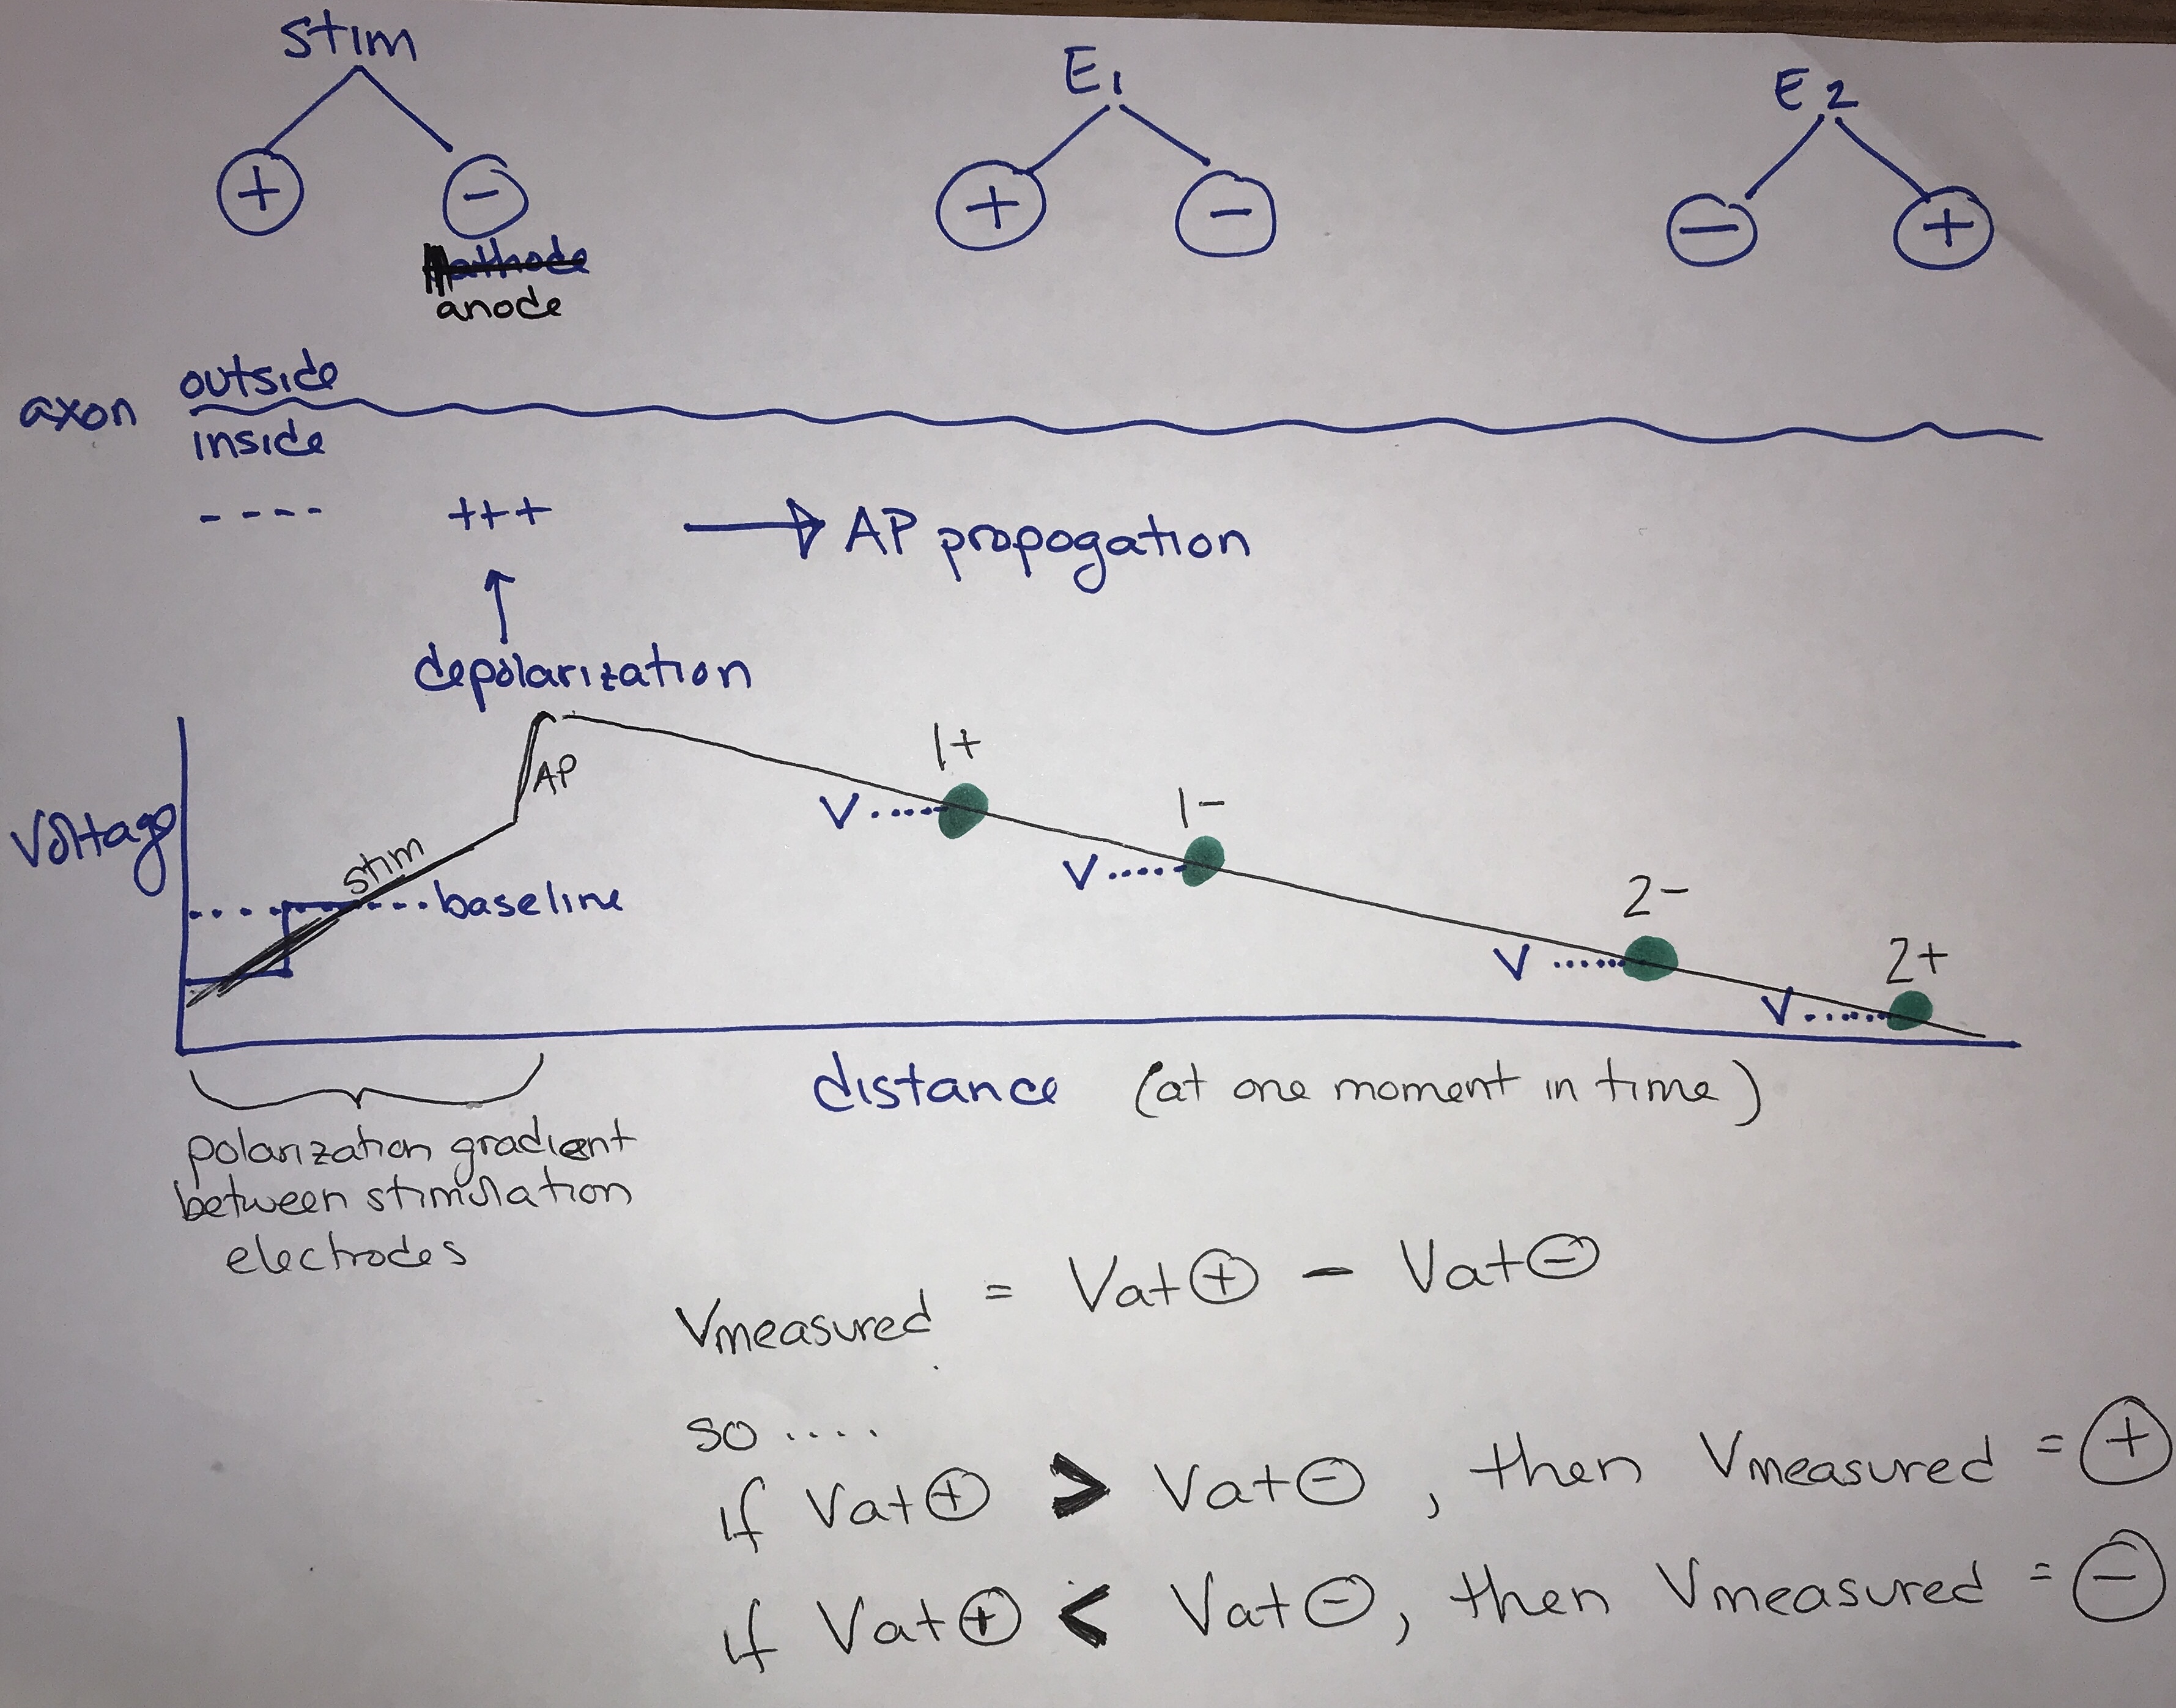 stim
E1
E2
+ -
+ -
- +
anode
outside
axon
inside
- - - -
+++
→ AP propogation
↑
depolarization
Voltage
stim
AP
baseline
1+
V.....
1-
V.....
2-
V......
2+
V......
distance (at one moment in time)
polarization gradient
between stimulation
electrodes
Vmeasured = Vat⊕ - Vat⊖
so ....
if Vat⊕ > Vat⊖, then Vmeasured = ⊕
if Vat⊕ < Vat⊖, then Vmeasured = ⊖